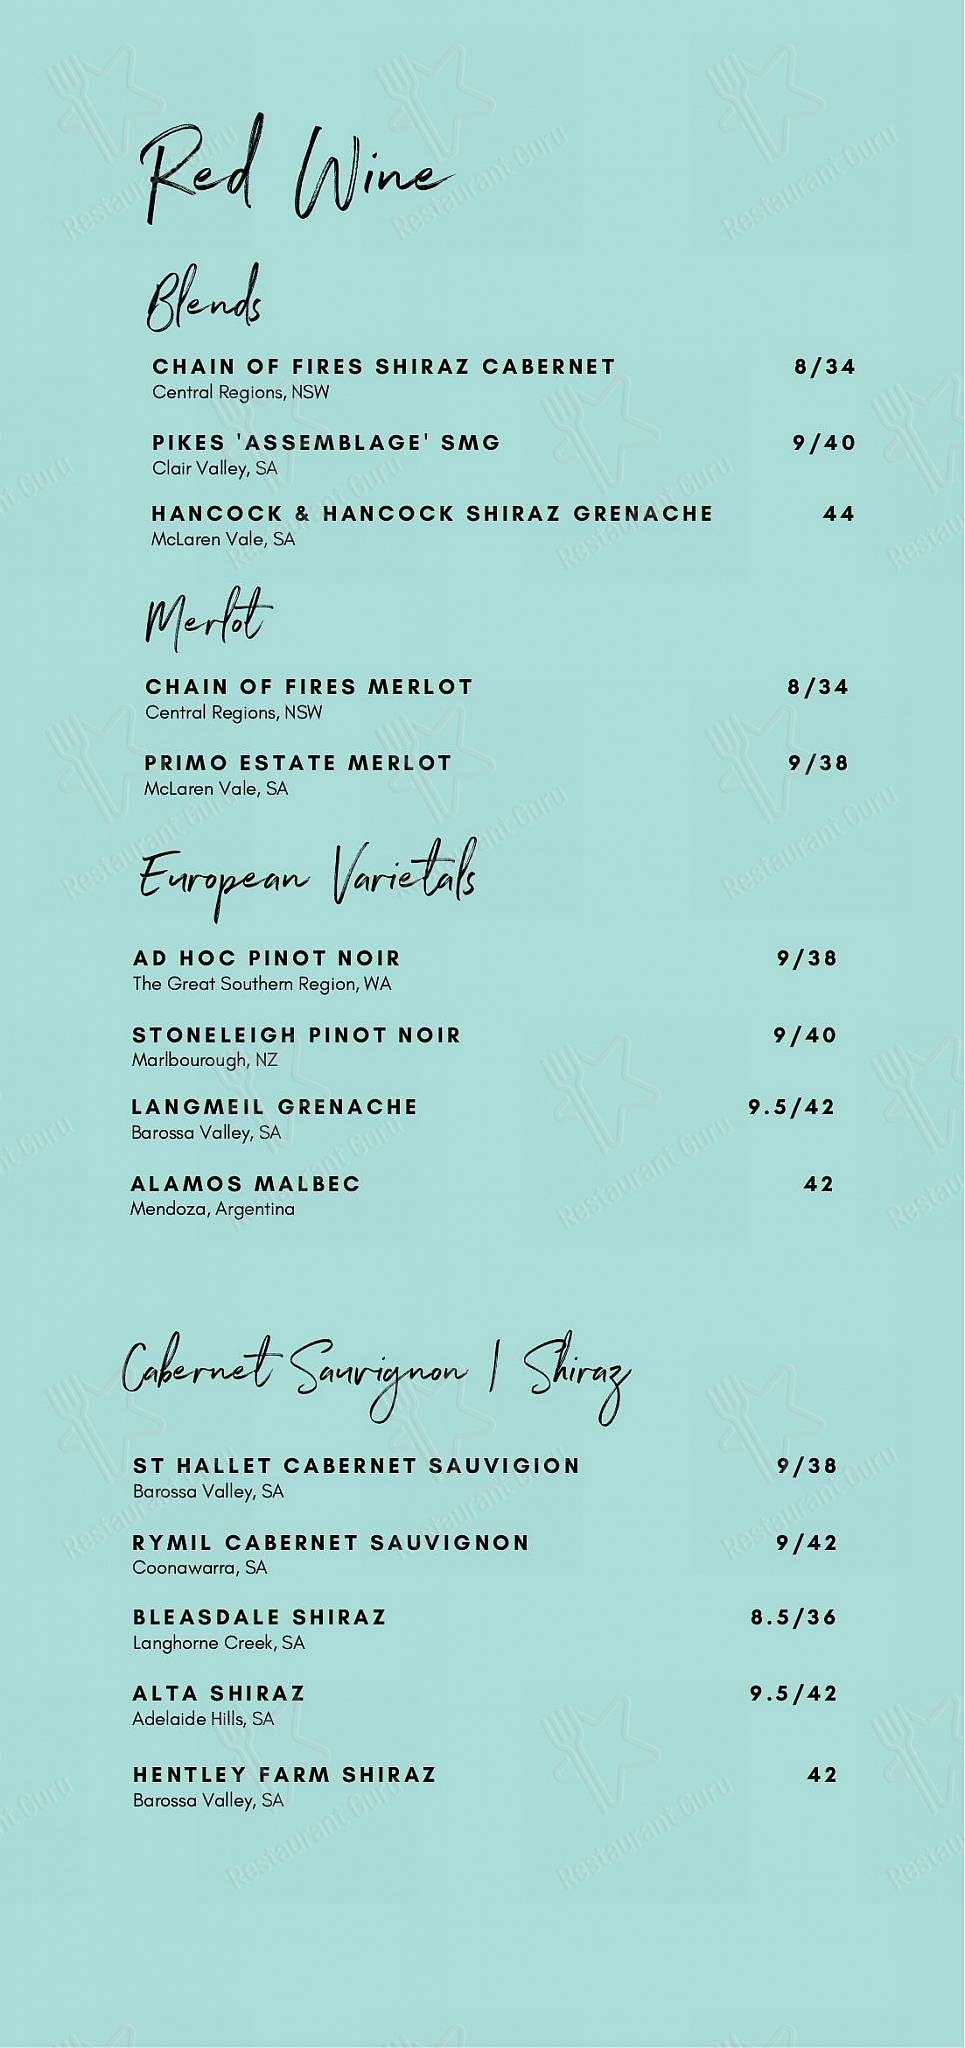 Red Wine
Blends
CHAIN OF FIRES SHIRAZ CABERNET 8/34
Central Regions, NSW
PIKES 'ASSEMBLAGE' SMG 9/40
Clair Valley, SA
HANCOCK & HANCOCK SHIRAZ GRENACHE 44
McLaren Vale, SA
Merlot
CHAIN OF FIRES MERLOT 8/34
Central Regions, NSW
PRIMO ESTATE MERLOT 9/38
McLaren Vale, SA
European Varietals
AD HOC PINOT NOIR 9/38
The Great Southern Region, WA
STONELEIGH PINOT NOIR 9/40
Marlbourough, NZ
LANGMEIL GRENACHE 9.5/42
Barossa Valley, SA
ALAMOS MALBEC 42
Mendoza, Argentina
Cabernet Sauvignon | Shiraz
ST HALLET CABERNET SAUVIGION 9/38
Barossa Valley, SA
RYMIL CABERNET SAUVIGNON 9/42
Coonawarra, SA
BLEASDALE SHIRAZ 8.5/36
Langhorne Creek, SA
ALTA SHIRAZ 9.5/42
Adelaide Hills, SA
HENTLEY FARM SHIRAZ 42
Barossa Valley, SA
Restaurant Guru